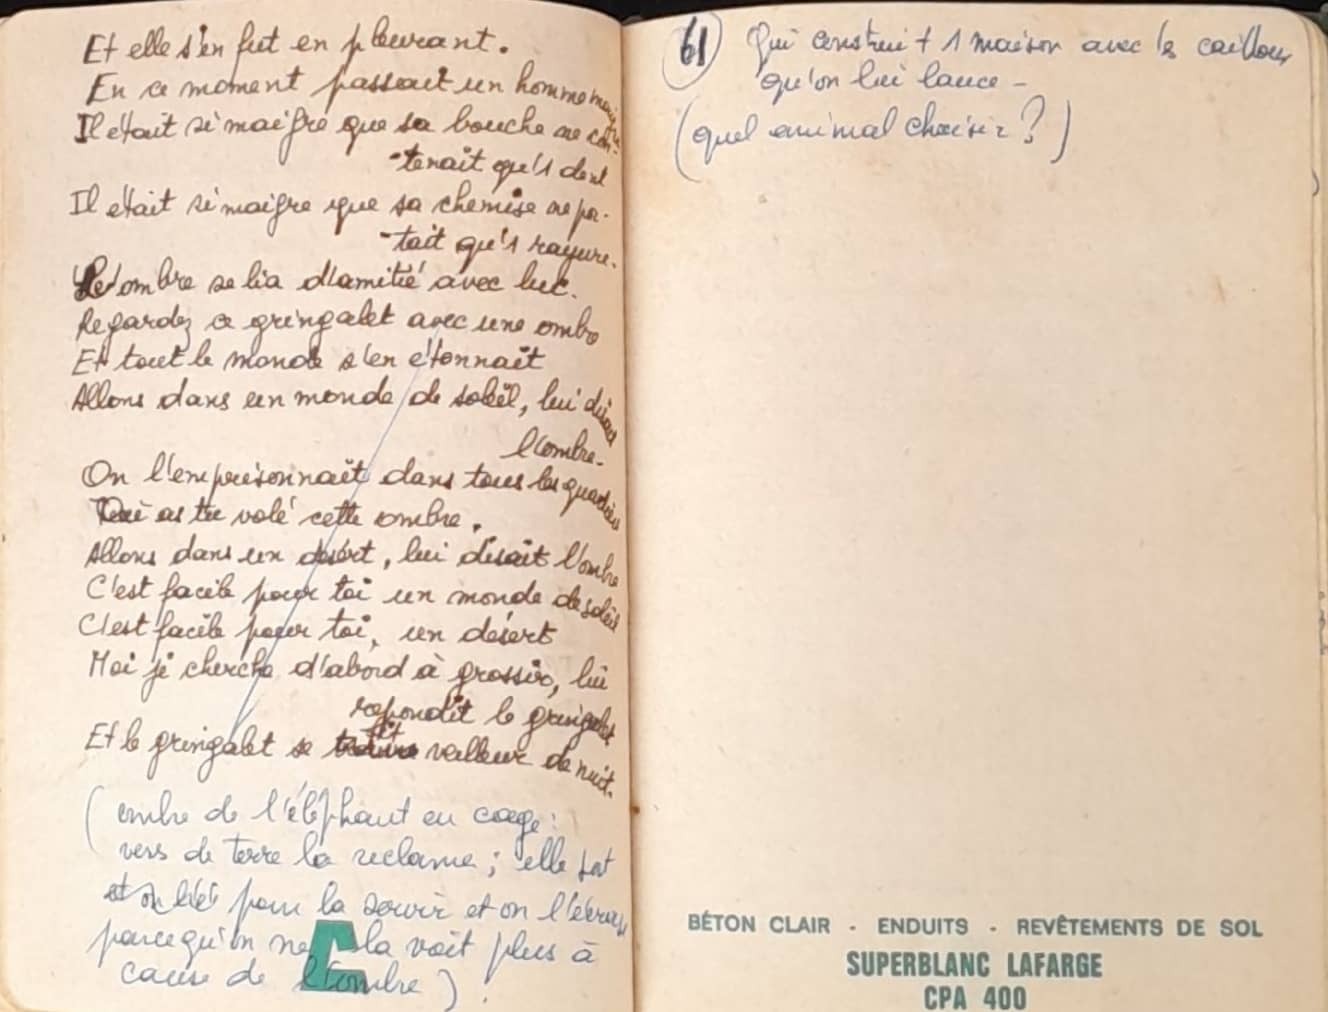 Et elle s'en fut en pleurant.
En ce moment passait un homme maigre
Il était si maigre que sa bouche ne con-
-tenait qu'1 dent
Il était si maigre que sa chemise ne por-
-tait qu'1 rayure.
L'ombre se lia d'amitié avec lui.
Regardez ce gringalet avec une ombre
Et tout le monde s'en étonnait
Allons dans un monde de soleil, lui disait
l'ombre.
On l'emprisonnait dans tous les quartiers
as tu volé cette ombre.
Allons dans un désert, lui disait l'ombre
C'est facile pour toi un monde de soleil
C'est facile pour toi, un désert
Moi je cherche d'abord à grossir, lui
répondit le gringalet
Et le gringalet se fit veilleur de nuit.
(ombre de l'éléphant en cage :
vers de terre la réclame ; elle sort
pour la servir et on l'écrase
parce qu'on ne la voit plus à
cause de l'ombre).
61 Qui construit 1 maison avec les cailloux
qu'on lui lance -
(quel animal choisir ?)
BÉTON CLAIR - ENDUITS - REVÊTEMENTS DE SOL
SUPERBLANC LAFARGE
CPA 400